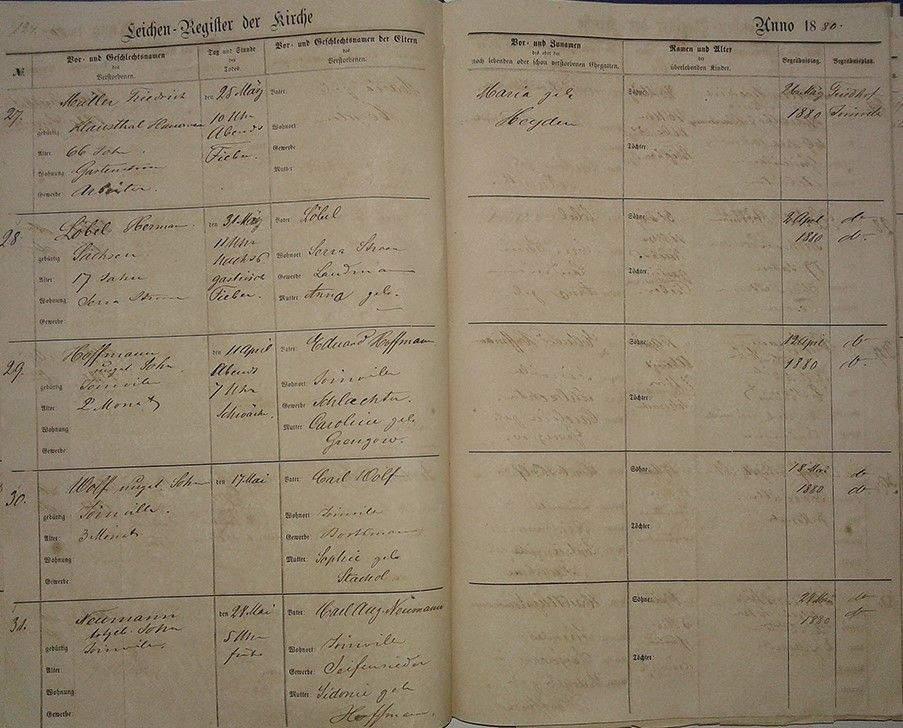 Leichen-Register der Kirche
Anno 1880.
№
Vor- und Geschlechtsnamen
des
Verstorbenen.
Tag und Stunde
des
Todes.
Vor- und Geschlechtsnamen der Eltern
des
Verstorbenen.
Vor- und Zunamen
des oder der
noch lebenden oder schon verstorbenen Ehegatten.
Namen und Alter
der
überlebenden Kinder.
Begräbnistag.
Begräbnisplatz.
27.
Müller Friedrich
gebürtig Klausthal Hannover
Alter: 66 Jahr.
Wohnung Gartenstrasse
Gewerbe: Arbeiter.
den 25 März
10 Uhr
Abends
Fieber.
Vater:
Wohnort
Gewerbe
Mutter:
Maria geb.
Heyden
Söhne:
Töchter:
26 März
1880
Friedhof
Joinville
28.
Löbel Herman
gebürtig Sachsen
Alter: 17 Jahr
Wohnung Serra Strasse
Gewerbe:
den 31 März
11 Uhr
Nachts
gastrisch
Fieber.
Vater: Löbel
Wohnort Serra Strasse
Gewerbe: Landmann
Mutter: Anna geb.
Söhne:
Töchter:
2 April
1880
do
do.
29.
Hoffmann
unget. Sohn.
gebürtig Joinville
Alter 2 Monat
Wohnung
Gewerbe:
den 11 April
Abends
7 Uhr
Schwäche.
Vater: Eduard Hoffmann
Wohnort: Joinville
Gewerbe: Schlachter
Mutter: Caroline geb.
Söhne:
Töchter:
12 April
1880
do
do.
30.
Wolf unget. Sohn
gebürtig Joinville.
Alter: 3 Monat
Wohnung:
Gewerbe:
den 17 Mai
Vater: Carl Wolf
Wohnort: Joinville
Gewerbe:
Mutter: Sophie geb.
Söhne:
Töchter
18 Mai
1880
do
do.
31.
Neumann
totgeb. Sohn
gebürtig Joinville.
Alter:
Wohnung:
Gewerbe:
den 28 Mai
5 Uhr
früh.
Vater: Carl Aug. Neumann
Wohnort: Joinville
Gewerbe: Seifensieder
Mutter: Sidonie geb.
Hoffmann.
Söhne:
Töchter:
28 Mai
1880
do
do.